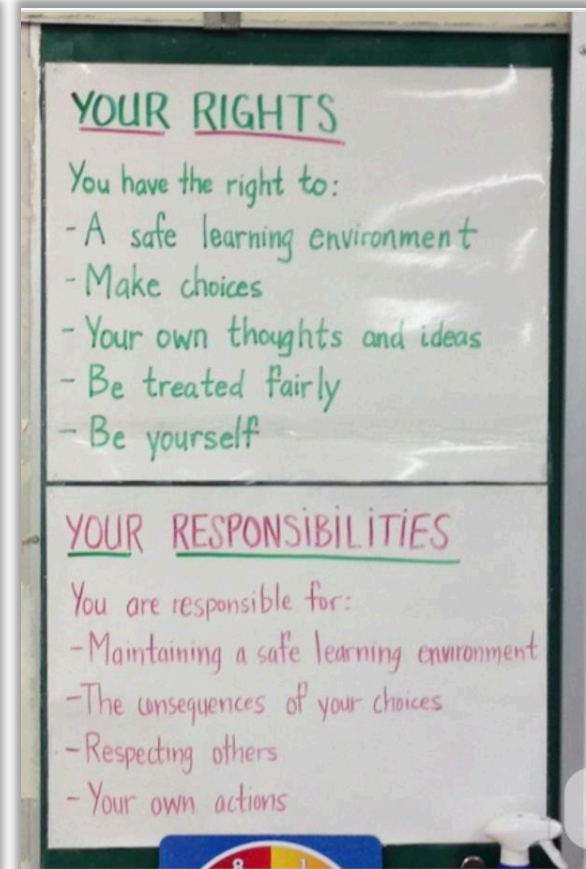 YOUR RIGHTS
You have the right to:
- A safe learning environment
- Make choices
- Your own thoughts and ideas
- Be treated fairly
- Be yourself
YOUR RESPONSiBiLiTiES
You are responsible for:
- Maintaining a safe learning environment
- The consequences of your choices
- Respecting others
- Your own actions
8 1